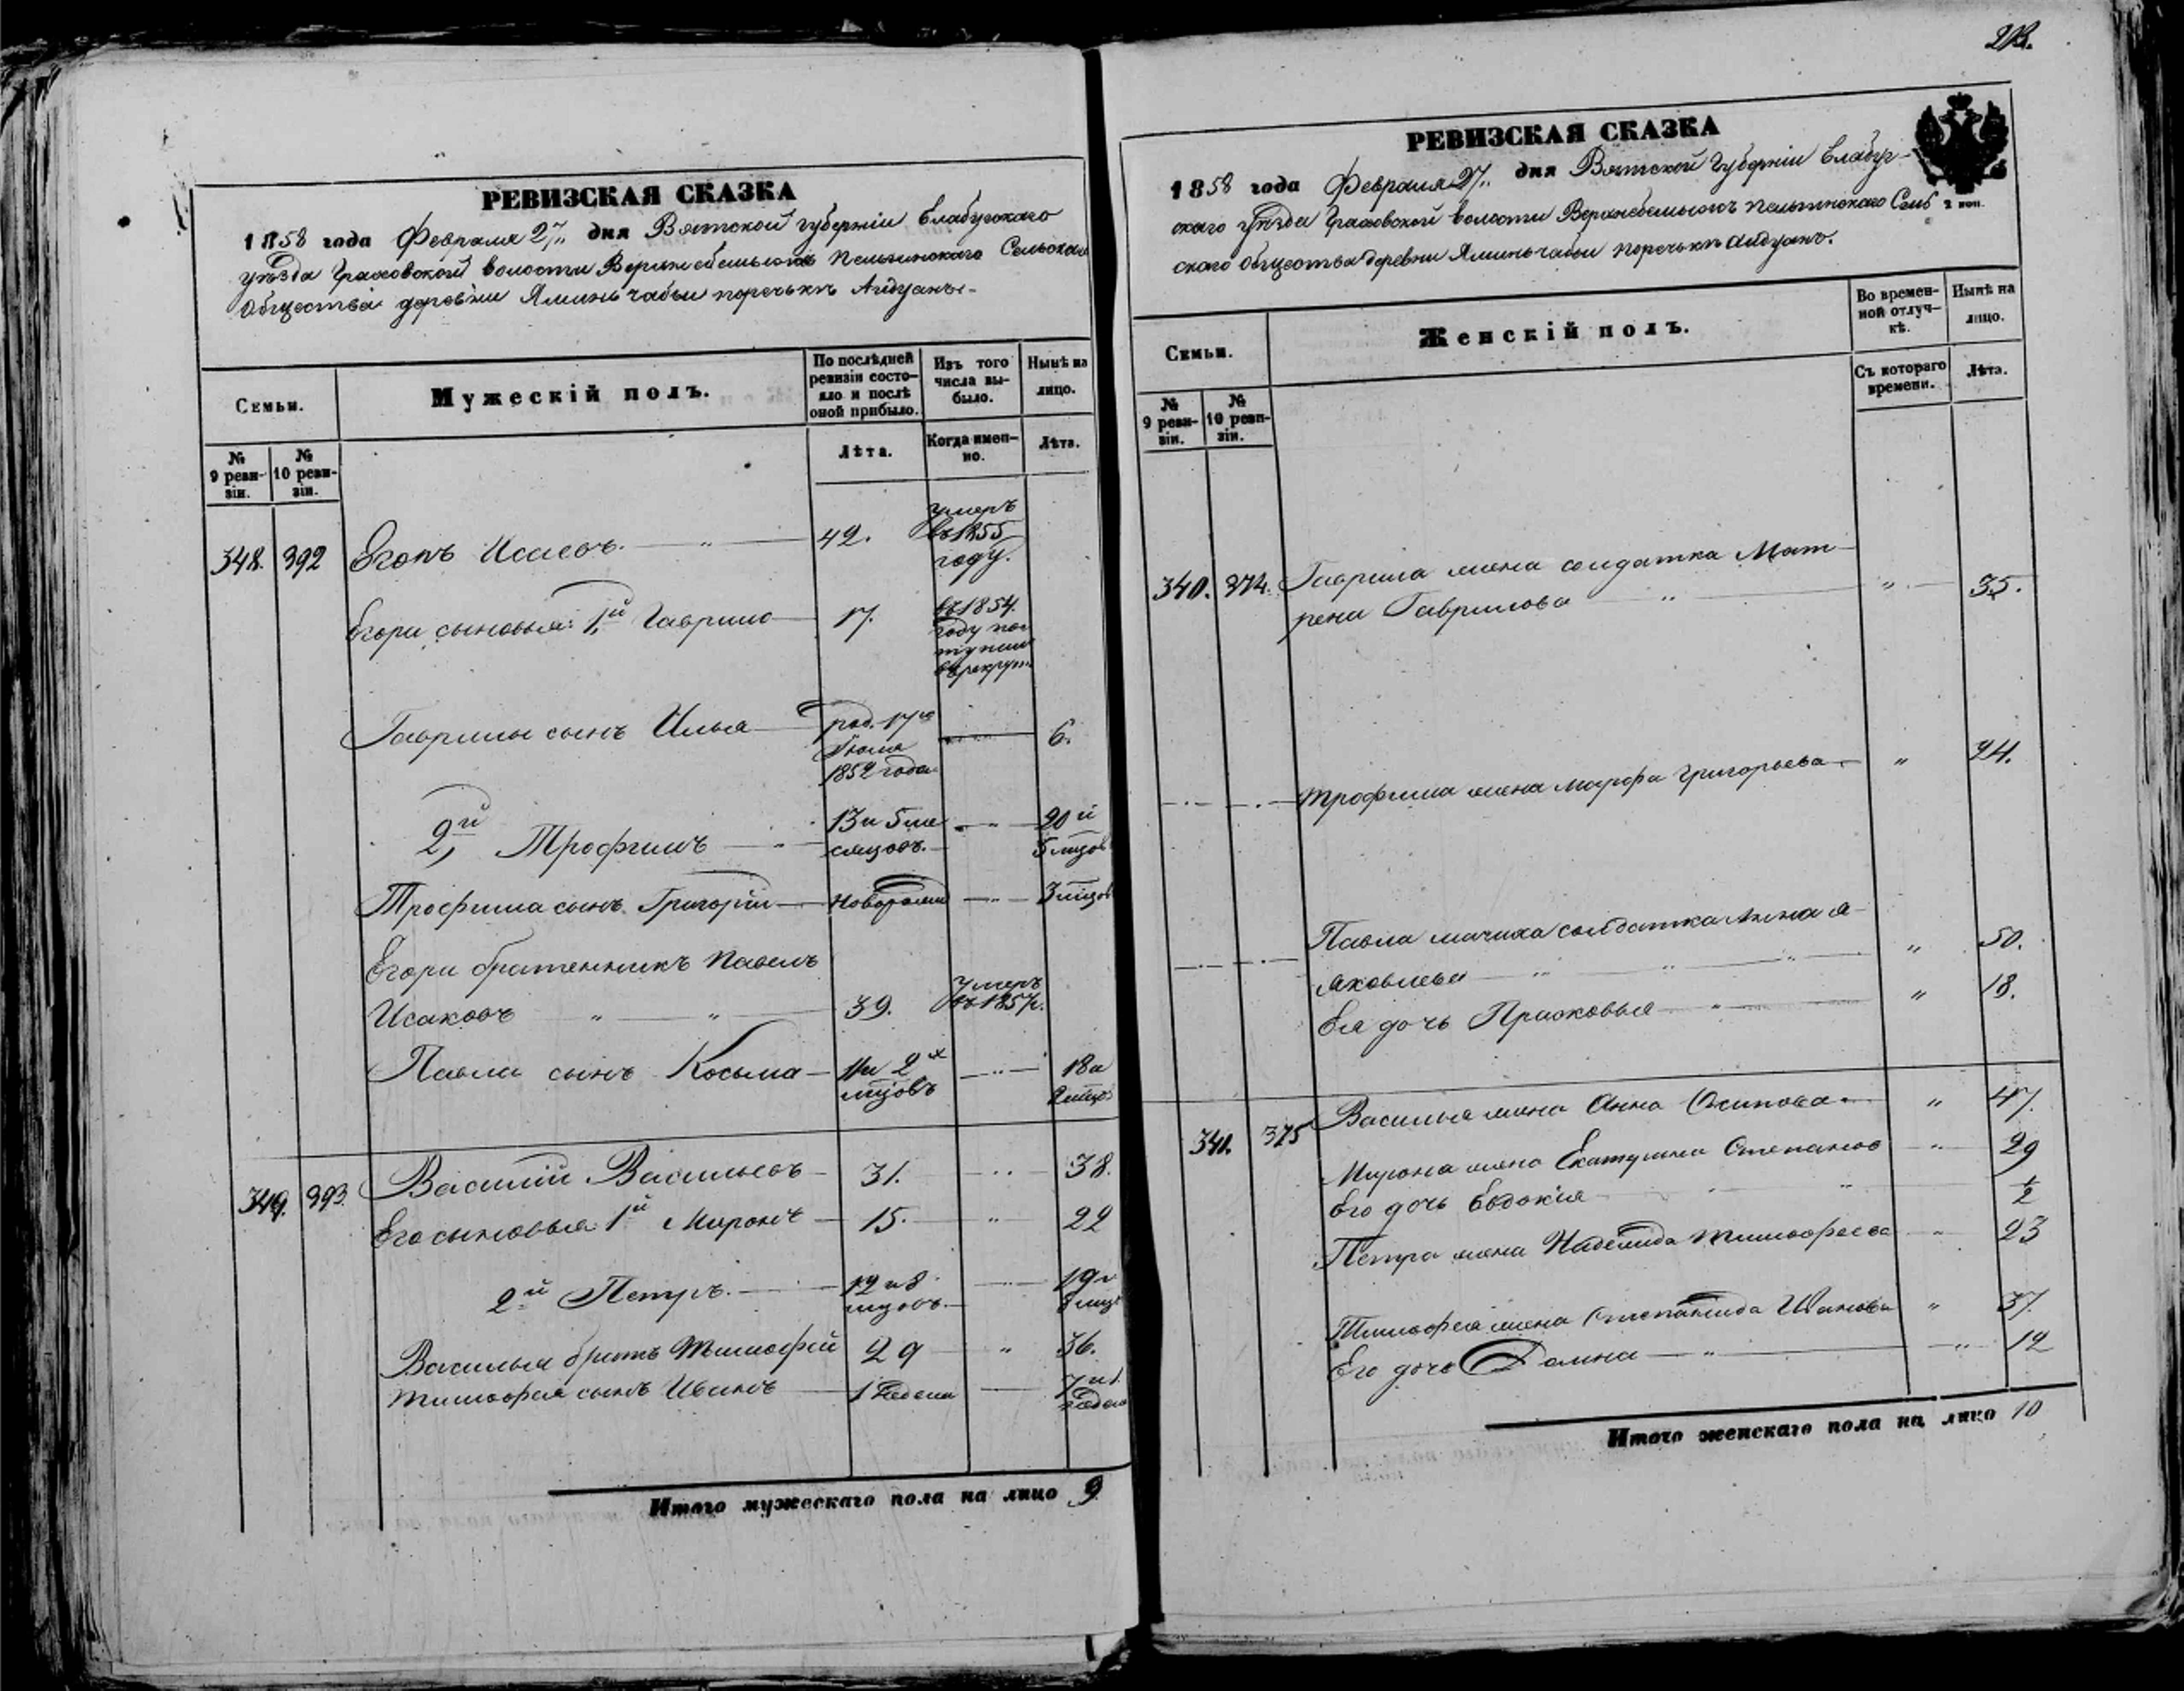 РЕВИЗСКАЯ СКАЗКА
1858 года Февраля 27 дня Вятской губерніи Елабугскаго
уѣзда Граховской волости Сельскаго
Общества деревни поречькѣ
Семьи.
Мужескій полъ.
По послѣдней ревизіи состояло и послѣ оной прибыло.
Изъ того числа выбыло.
Нынѣ на лицо.
№ 9 ревизіи.
№ 10 ревизіи.
Лѣта.
Когда именно.
Лѣта.
348. 392 Егоръ Исаевъ 42. умеръ въ 1855 году.
Егора сыновья: 1й Гаврило 17. въ 1854 году поступилъ въ рекрут
Гаврилы сынъ Илья род. 17го Іюля 1852 года 6.
2й Трофимъ 13 и 5 месяцовъ. 20 и 5 мцов
Трофима сынъ Григорій новорожден 3 мцов
Егора братенникъ Павелъ
Исаковъ 39. умеръ въ 1857 г.
Павла сынъ Косьма 11 и 2х мцовъ 18 и 2 мцов
349. 393. Василій Васильевъ 31. 38.
Его сыновья 1й Миронъ 15. 22
2й Петръ. 12 и 8 мцовъ. 19 и 8 мцв
Василья братъ Тимофей 29 36.
Тимофея сынъ Иванъ 1 недели 7 и 1 недели
Итого мужескаго пола на лицо 9
РЕВИЗСКАЯ СКАЗКА
1858 года Февраля 27 дня Вятской губерніи Елабуг-
скаго уѣзда Граховской волости Сель
2 коп.
скаго общества деревни поречькѣ
Семьи.
Женскій полъ.
Во временной отлучкѣ.
Нынѣ на лицо.
№ 9 ревизіи.
№ 10 ревизіи.
Съ котораго времени.
Лѣта.
340. 374. Гаврила жена солдатка Мат-
рена Гаврилова " 35.
Трофима жена Марфа Григорьева " 24.
Павла мачиха солдатка Анна Я-
яковлева " 50.
Ея дочь Прасковья " 18.
341. 375 Василья жена Анна Осипова " 47.
Мирона жена Екатерина Степанова 29
Его дочь Евдокія ½
Петра жена Надежда Тимофеева 23
Тимофея жена Степанида Иванова " 37.
Его дочь Домна 12
Итого женскаго пола на лицо 10